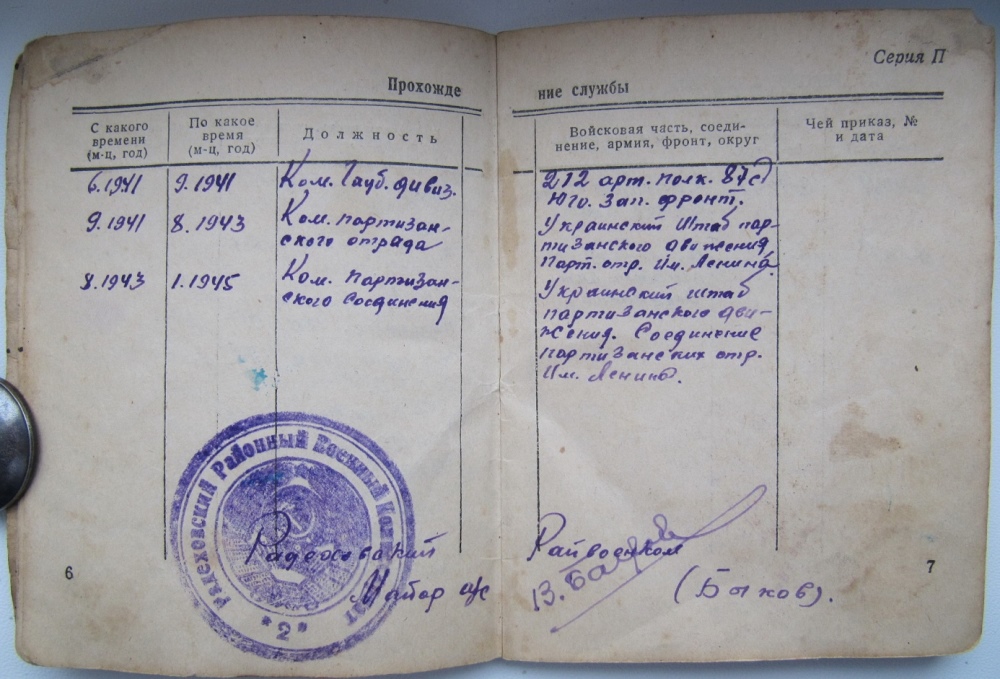 Серия П
Прохождение службы
С какого времени (м-ц, год)
По какое время (м-ц, год)
Должность
Войсковая часть, соеди-
нение, армия, фронт, округ
Чей приказ, №
и дата
6.1941 9.1941 Ком. Гауб. дивиз. 212 арт. полк. 87сд
Юго. Зап. фронт.
9.1941 8.1943 Ком. партизан- Украинский Штаб пар-
ского отряда тизанского движения
Парт. отр. Им. Ленина
8.1943 1.1945 Ком. Партизан- Украинский штаб
ского Соединения партизанского дви-
жения. Соединение
партизанских отр.
Им. Ленина.
Районный Военный
"2"
Радеховский Райвоенком
Майор (Быков).
6
7